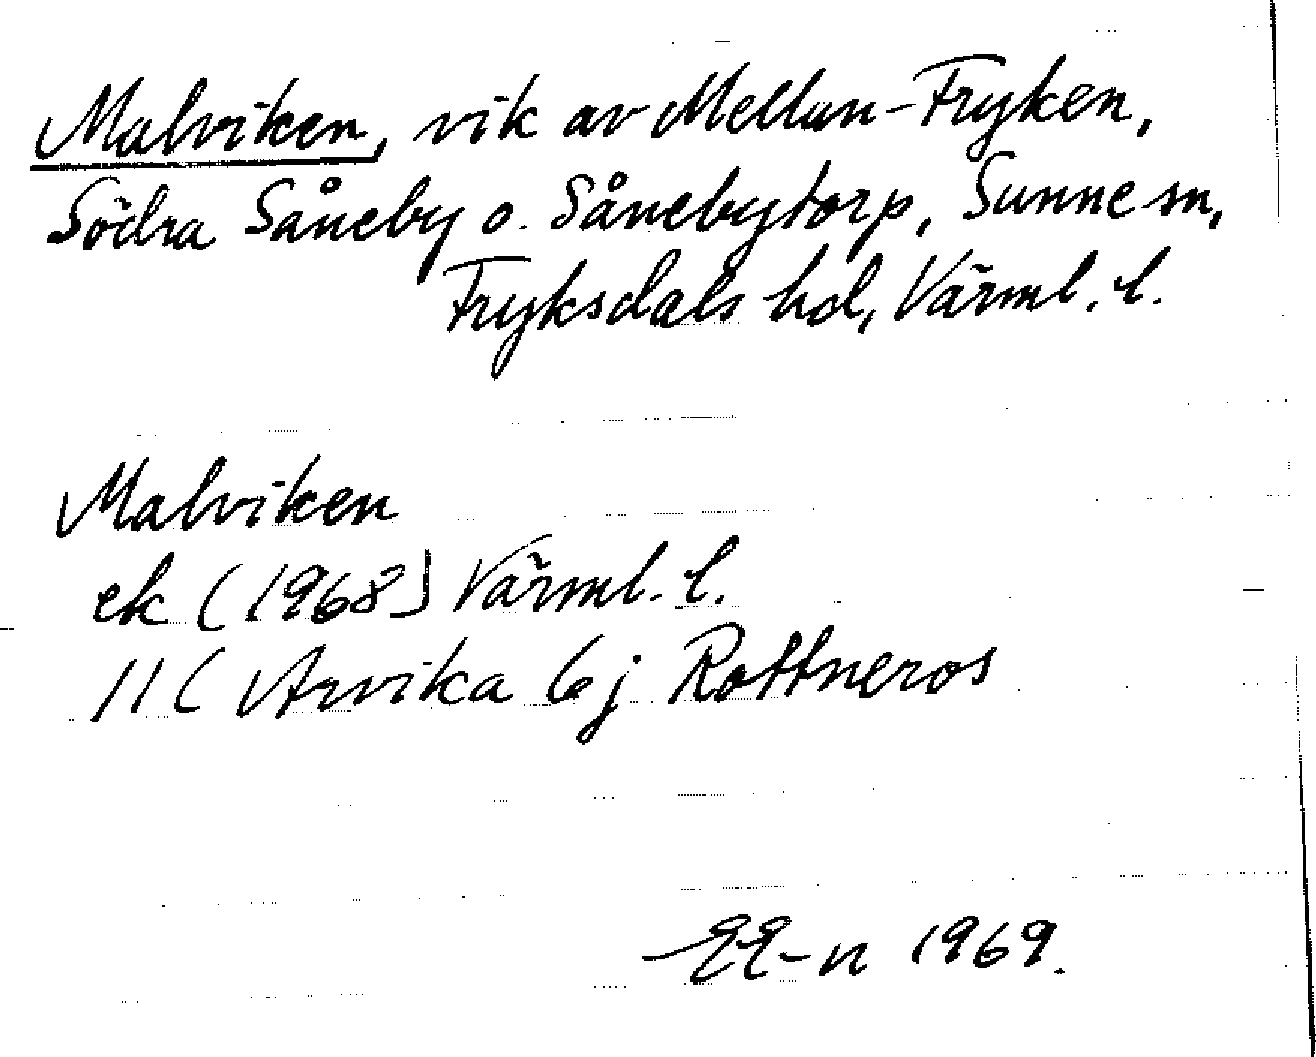 Malviken, vik av Mellan-Fryken,
Södra Såneby o. Sånebytorp, Sunne sn,
Fryksdals hd, Värml. l.
Malviken
ek (1968) Värml. l.
11 C Arvika 6j Rottneros
EE-n 1969.